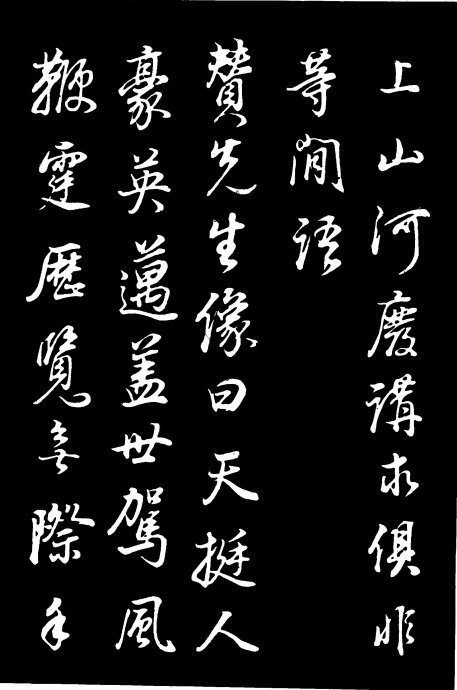 上山河廢講求俱非
等閒語
贊先生像曰天挺人
豪英邁蓋世駕風
鞭霆歷覽無際手